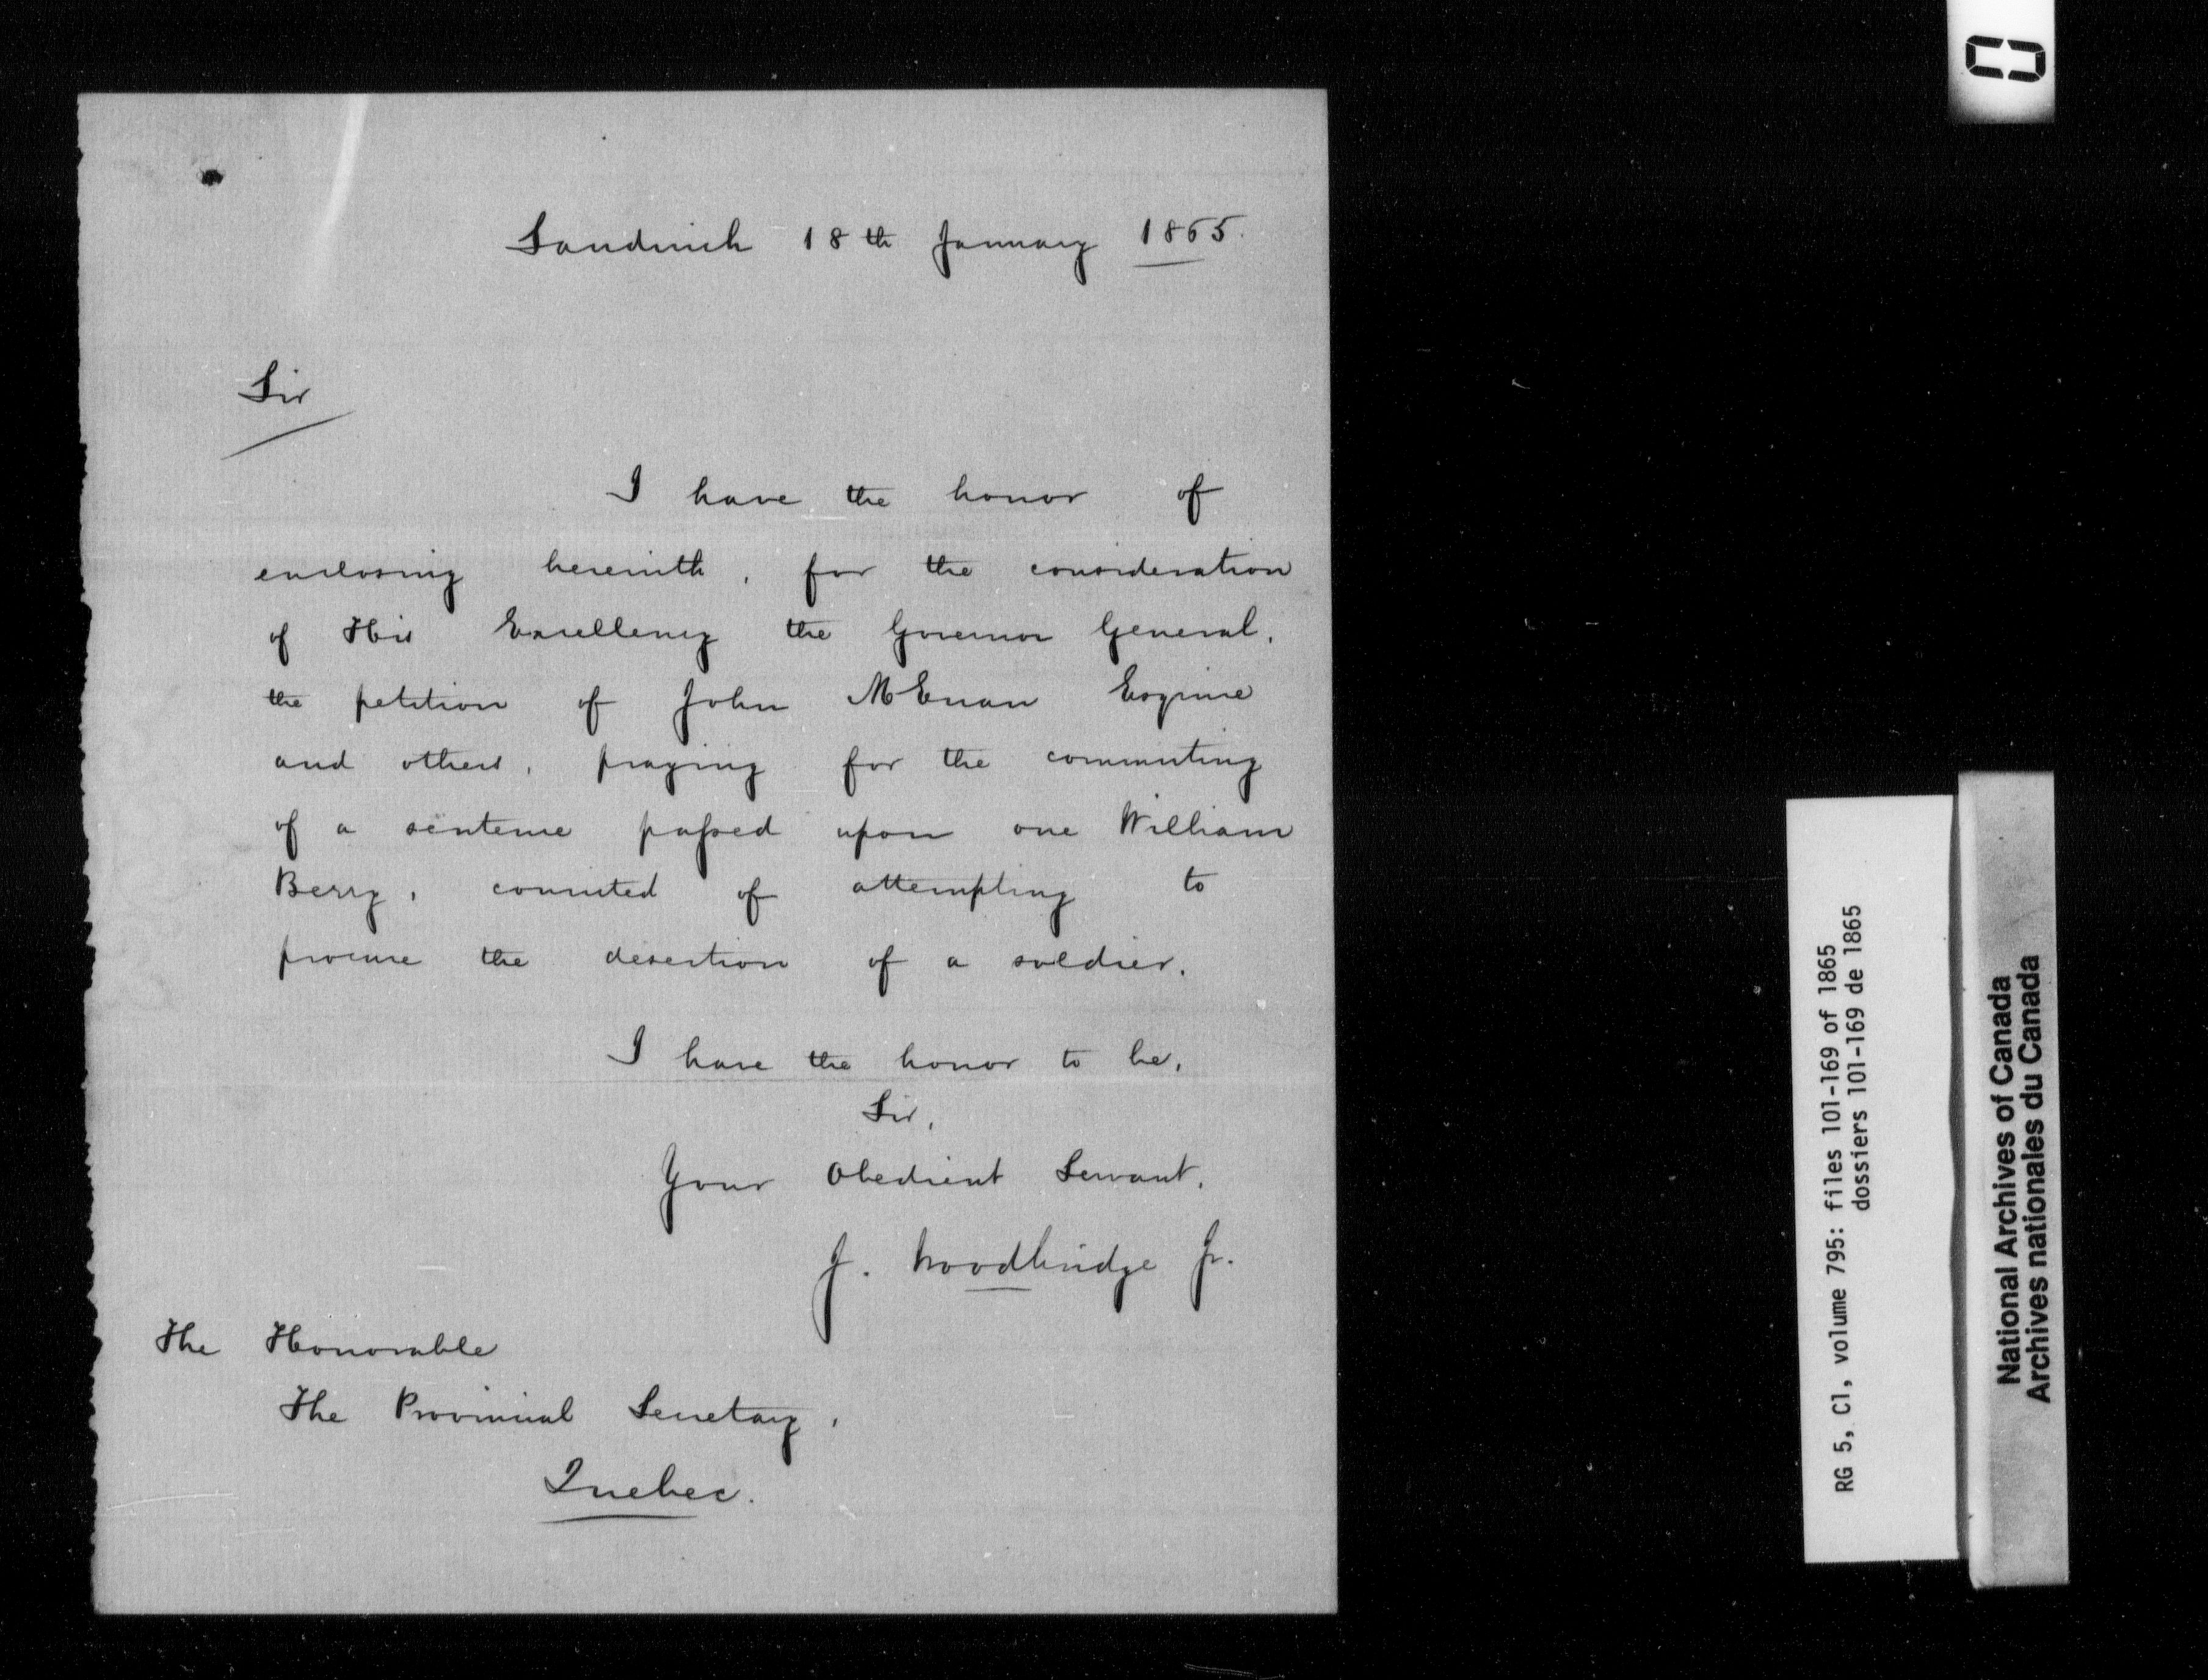 Sandwich 18th January 1865.
Sir
I have the honor of
enclosing herewith, for the consideration
of His Excellency the Governor General,
the petition of John McEwan Esquire
and others, praying for the commuting
of a sentence passed upon one William
Berry, convicted of attempting to
procure the desertion of a soldier.
I have the honor to be,
Sir,
Your Obedient Servant,
J. Woodbridge Jr.
The Honorable
The Provincial Secretary,
Quebec.
RG 5, C1, volume 795: files 101-169 of 1865
dossiers 101-169 de 1865
National Archives of Canada
Archives nationales du Canada